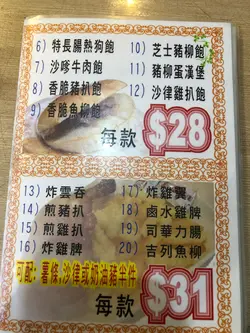 6) 特長腸熱狗飽
7) 沙嗲牛肉飽
8) 香脆豬扒飽
9) 香脆魚柳飽
10) 芝士豬柳飽
11) 豬柳蛋漢堡
12) 沙律雞扒飽
每款 $28
13) 炸雲吞
14) 煎豬扒
15) 煎雞扒
16) 炸雞脾
17) 炸雞翼
18) 鹵水雞脾
19) 司華力腸
20) 吉列魚柳
可配: 薯條,沙律或奶油豬半件
每款 $31